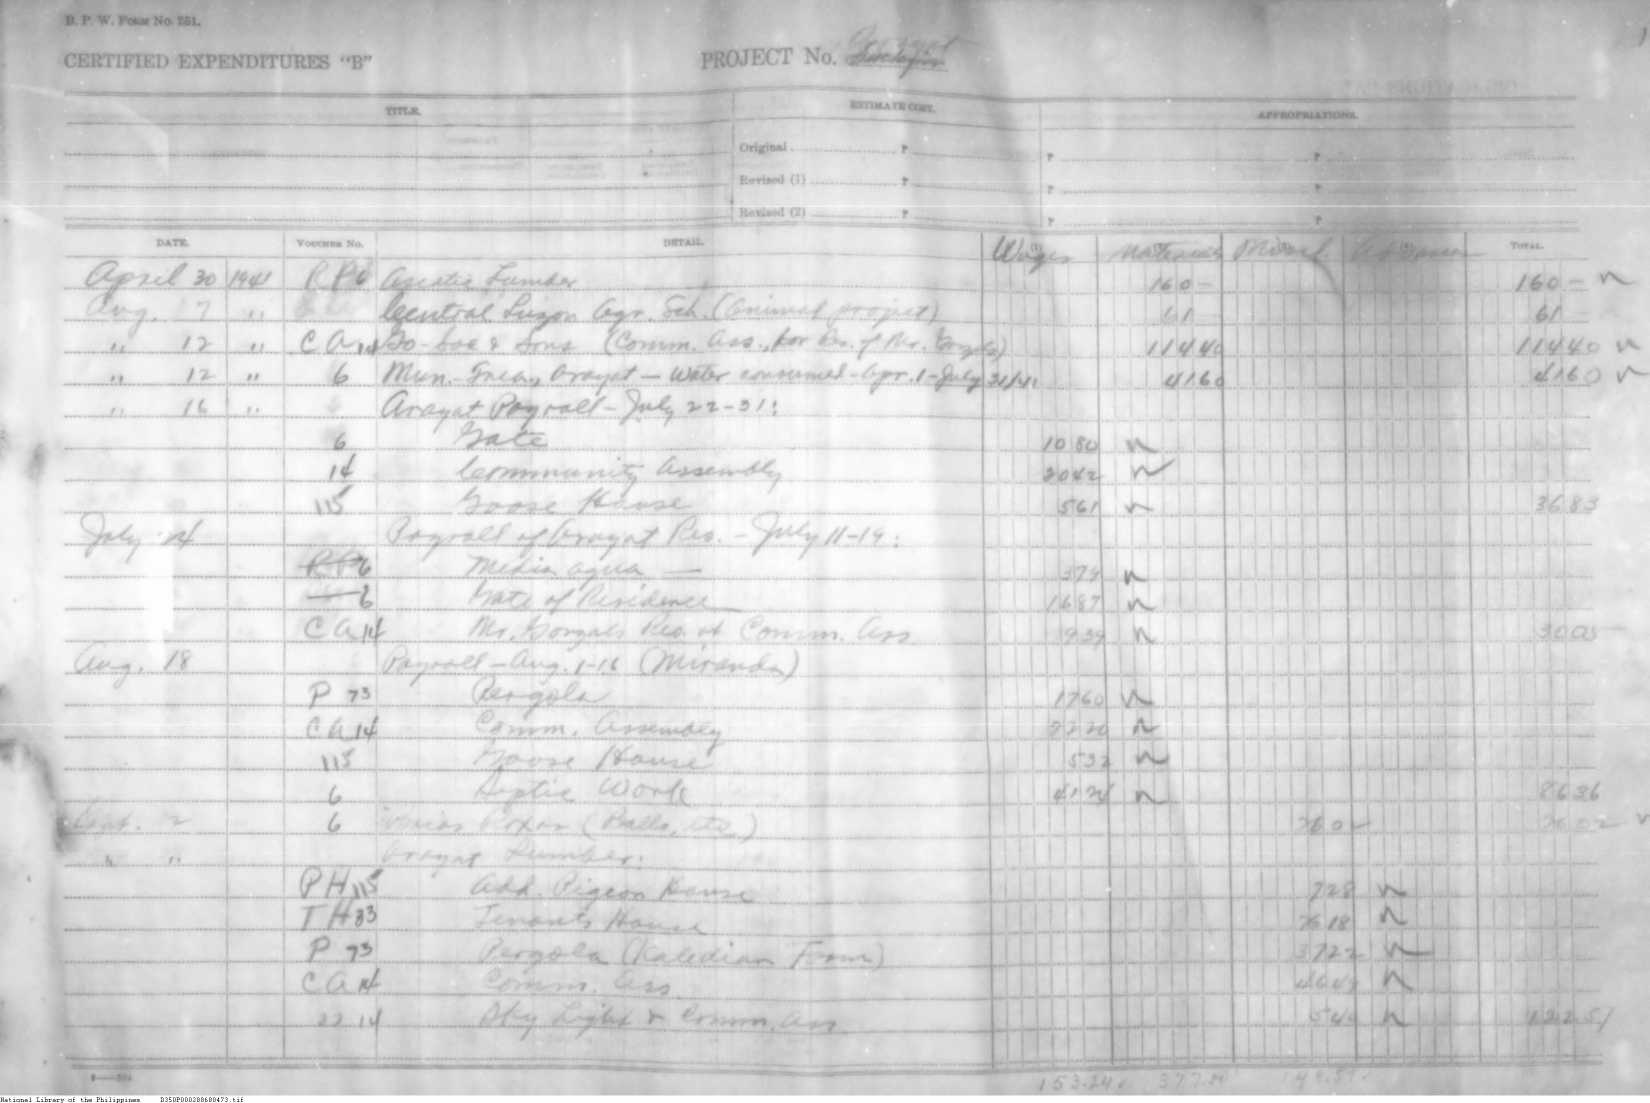 B. P. W. Form No. 251.
CERTIFIED EXPENDITURES "B"
PROJECT No. Arayat
TITLE.
ESTIMATE COST.
APPROPRIATIONS.
Original P P P
Revised (1) P P P
Revised (2) P P P
DATE. VOUCHER No. DETAIL. Wages Materials TOTAL.
April 30 1941 R P 6 Asiatic Lumber 160 - 160 -
Aug. 7 " Central Luzon Agr. Sch. (Animal project) 61 - 61 -
" 12 " C A 14 Go-Soc & Sons (Comm. Ass., for Res. of Mr. 114 40 114 40
" 12 " 6 Mun. Treas, Arayat - Water consumed - Apr. 1 - July 31/41 41 60 41 60
" 16 " Arayat Payroll - July 22-31:
6 Gate 10 80
14 Community Assembly 20 42
115 Goose House 5 61 36 83
July 24 Payroll of Arayat Res. - July 11-19:
6 Media agua 3 79
6 Gate of Residence 16 87
C A 14 Mr. Res. at Comm. Ass 9 39 30 05
Aug. 18 Payroll - Aug. 1-16 (Miranda)
P 73 Pergola 17 60
C A 14 Comm. Assembly 22 20
115 Goose House 5 32
6 Septic Work 41 24 86 36
2 6 Roxas (Balls, etc.)
" " Arayat Lumber:
P H 115 Add. Pigeon House 7 28
T H 33 Tenants House 26 18
P 73 Pergola (Kaledian Form) 37 22
C A 14 Comm. Ass.
22 14 Sky Light & Comm. Ass 5 40 122 57
153.24
National Library of the Philippines D350P000208600473.tif